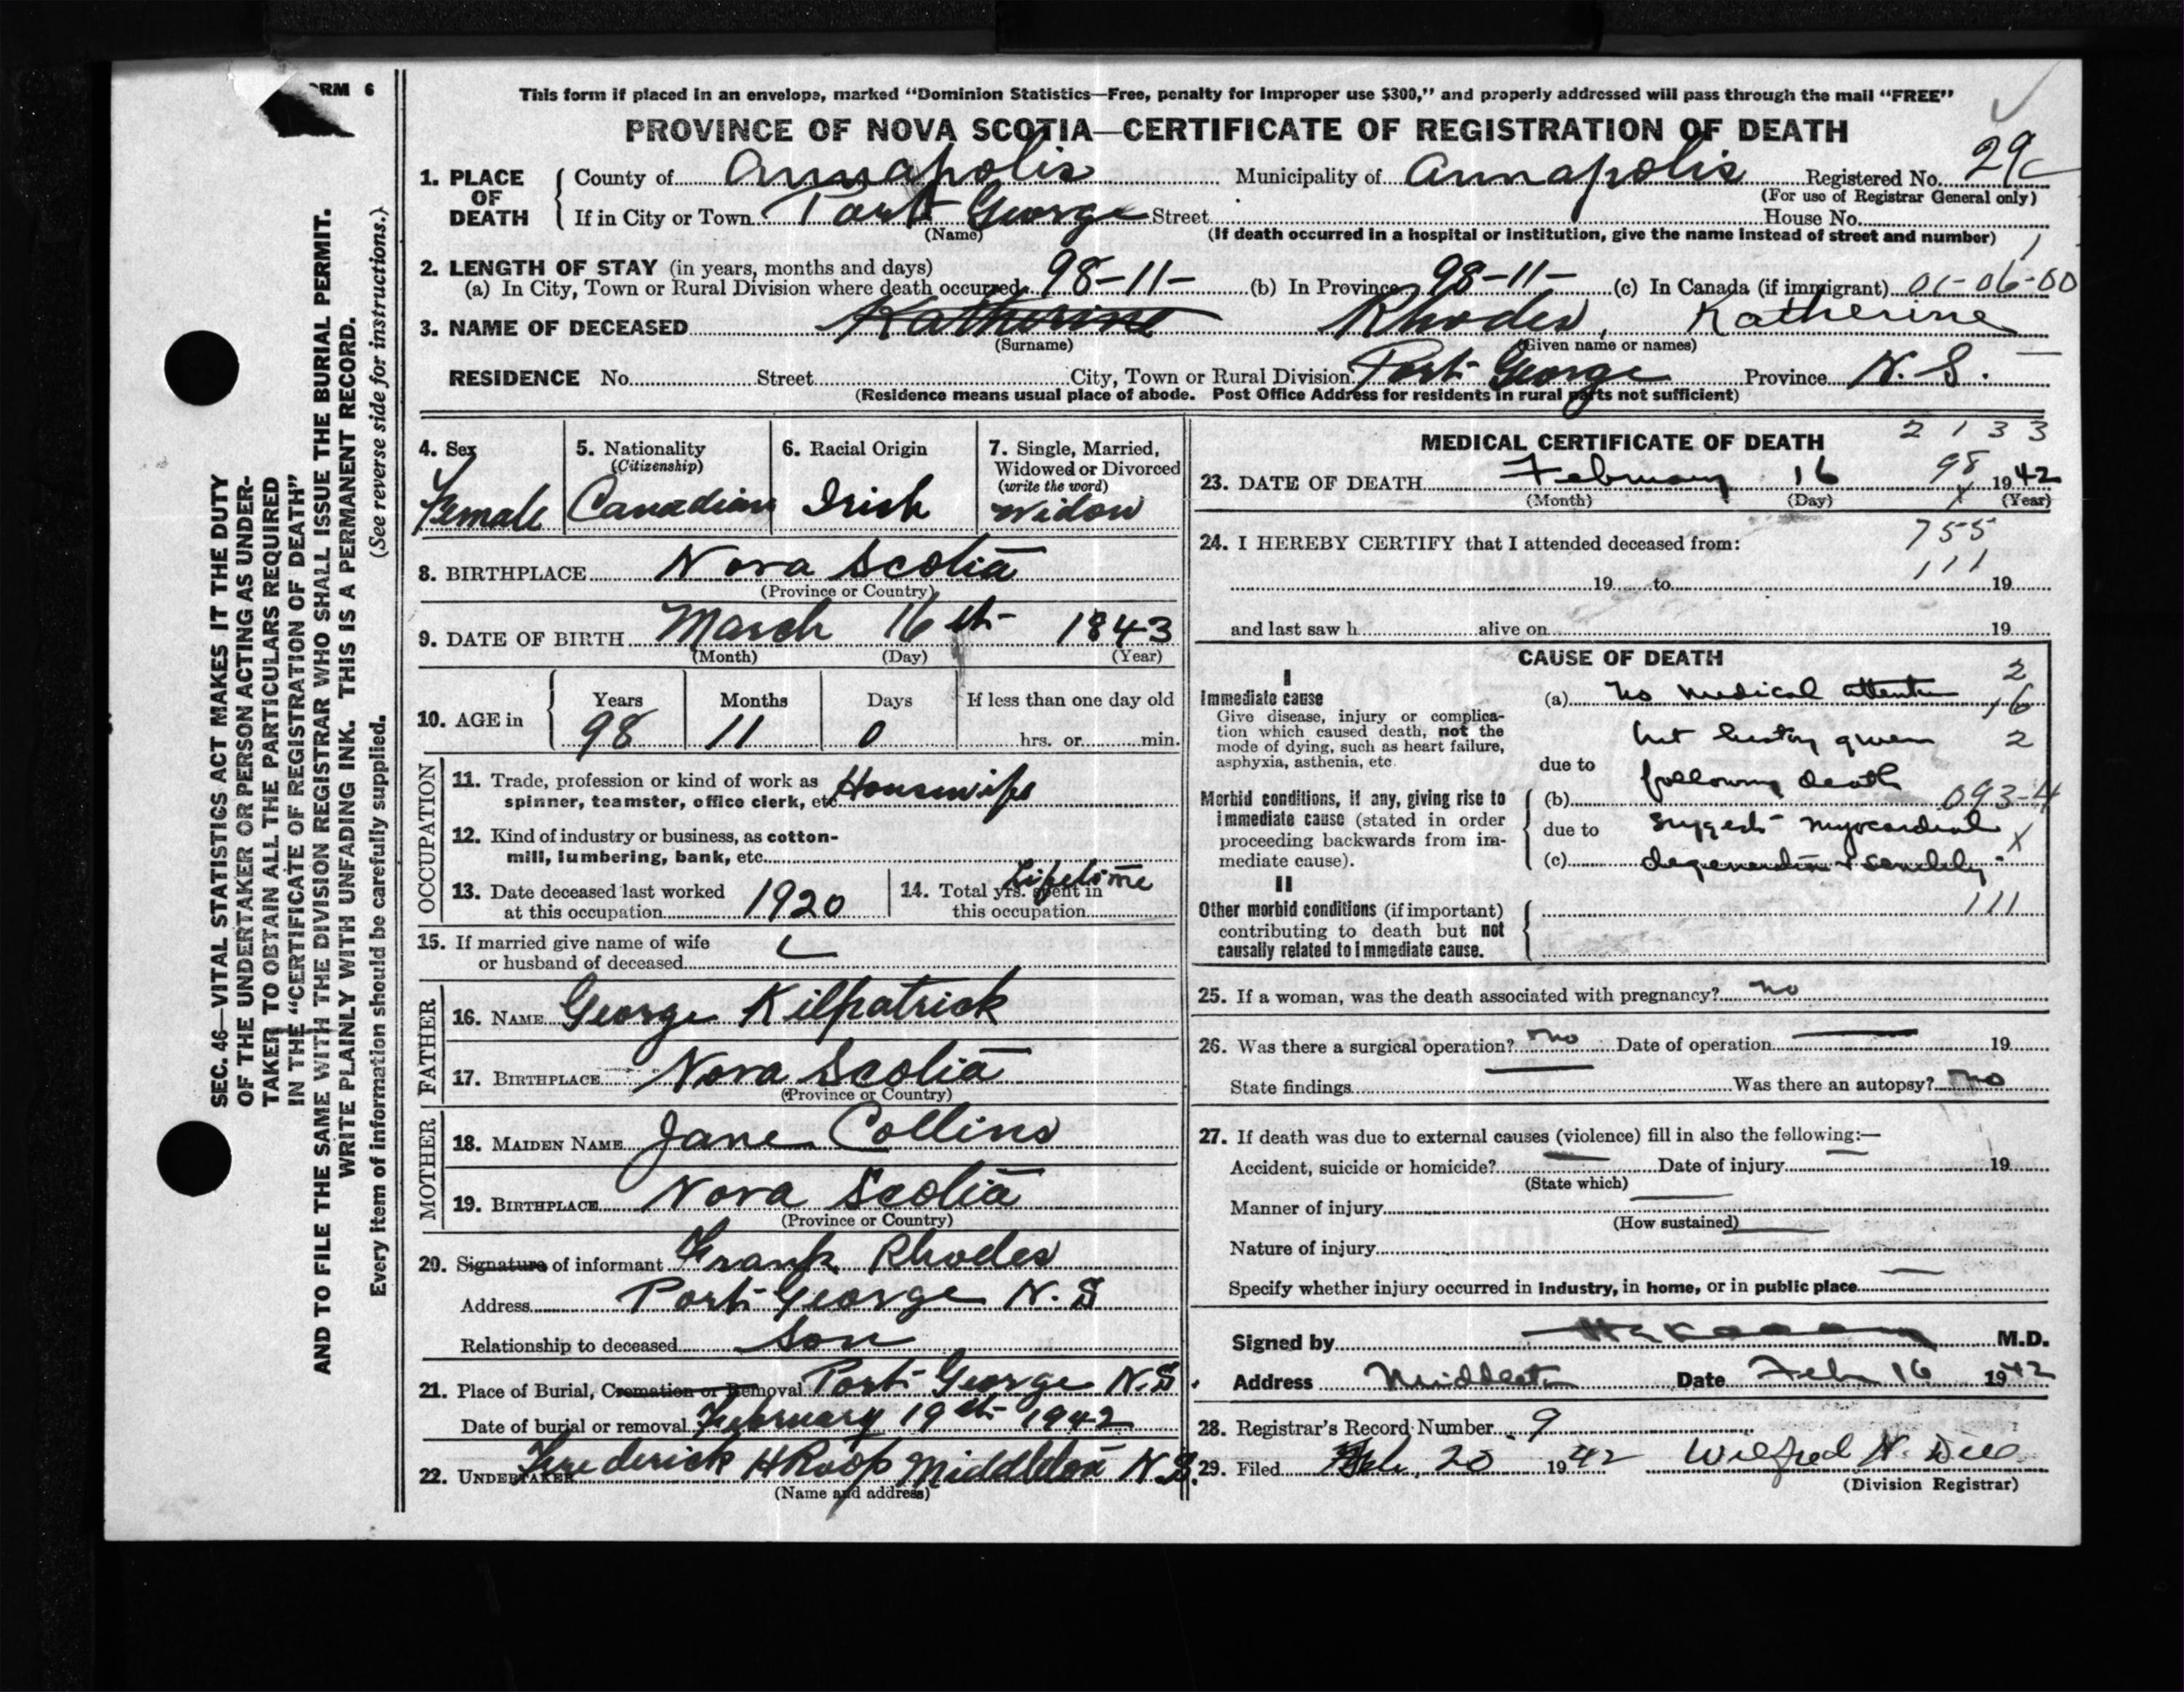 FORM 6
This form if placed in an envelope, marked "Dominion Statistics—Free, penalty for improper use $300," and properly addressed will pass through the mail "FREE"
PROVINCE OF NOVA SCOTIA—CERTIFICATE OF REGISTRATION OF DEATH
1. PLACE OF DEATH County of Annapolis Municipality of Annapolis Registered No. 29c
(For use of Registrar General only)
If in City or Town Port George Street House No.
(Name) (If death occurred in a hospital or institution, give the name instead of street and number) 1
2. LENGTH OF STAY (in years, months and days)
(a) In City, Town or Rural Division where death occurred 98-11- (b) In Province 98-11- (c) In Canada (if immigrant) 01-06-00
3. NAME OF DECEASED Katherine Rhodes, Katherine
(Surname) (Given name or names)
RESIDENCE No. Street City, Town or Rural Division Port George Province N.S.
(Residence means usual place of abode. Post Office Address for residents in rural parts not sufficient)
4. Sex
Female
5. Nationality
(Citizenship)
Canadian
6. Racial Origin
Irish
7. Single, Married,
Widowed or Divorced
(write the word)
Widow
8. BIRTHPLACE Nova Scotia
(Province or Country)
9. DATE OF BIRTH March 16th 1843
(Month) (Day) (Year)
10. AGE in Years Months Days If less than one day old
98 11 0 hrs. or min.
OCCUPATION
11. Trade, profession or kind of work as
spinner, teamster, office clerk, etc. Housewife
12. Kind of industry or business, as cotton-
mill, lumbering, bank, etc.
13. Date deceased last worked
at this occupation 1920
14. Total yrs. spent in
this occupation Lifetime
15. If married give name of wife
or husband of deceased
FATHER
16. NAME George Kilpatrick
17. BIRTHPLACE Nova Scotia
(Province or Country)
MOTHER
18. MAIDEN NAME Jane Collins
19. BIRTHPLACE Nova Scotia
(Province or Country)
20. Signature of informant Frank Rhodes
Address Port George N.S
Relationship to deceased Son
21. Place of Burial, Cremation or Removal Port George N.S.
Date of burial or removal February 19th 1942
22. UNDERTAKER Frederick H Roop Middleton N.S.
(Name and address)
MEDICAL CERTIFICATE OF DEATH 2133
23. DATE OF DEATH February 16 98 1942
(Month) (Day) (Year)
24. I HEREBY CERTIFY that I attended deceased from: 755
19 to 111 19
and last saw h alive on 19
CAUSE OF DEATH
I
Immediate cause
Give disease, injury or complica-
tion which caused death, not the
mode of dying, such as heart failure,
asphyxia, asthenia, etc.
(a) No medical attention 2
16
but history given 2
due to
following death
Morbid conditions, if any, giving rise to
immediate cause (stated in order
proceeding backwards from im-
mediate cause).
(b) 093-4
due to suggests myocardial X
(c) degeneration & senility
II
Other morbid conditions (if important)
contributing to death but not
causally related to immediate cause.
111
25. If a woman, was the death associated with pregnancy? no
26. Was there a surgical operation? no Date of operation 19
State findings Was there an autopsy? no
27. If death was due to external causes (violence) fill in also the following:—
Accident, suicide or homicide? Date of injury 19
(State which)
Manner of injury
(How sustained)
Nature of injury
Specify whether injury occurred in industry, in home, or in public place
Signed by M.D.
Address Middleton Date Feb 16 1942
28. Registrar's Record Number 9
29. Filed Feb. 20 1942 Wilfred N. Dill
(Division Registrar)
SEC. 46—VITAL STATISTICS ACT MAKES IT THE DUTY
OF THE UNDERTAKER OR PERSON ACTING AS UNDER-
TAKER TO OBTAIN ALL THE PARTICULARS REQUIRED
IN THE "CERTIFICATE OF REGISTRATION OF DEATH"
AND TO FILE THE SAME WITH THE DIVISION REGISTRAR WHO SHALL ISSUE THE BURIAL PERMIT.
WRITE PLAINLY WITH UNFADING INK. THIS IS A PERMANENT RECORD.
Every item of information should be carefully supplied. (See reverse side for instructions.)